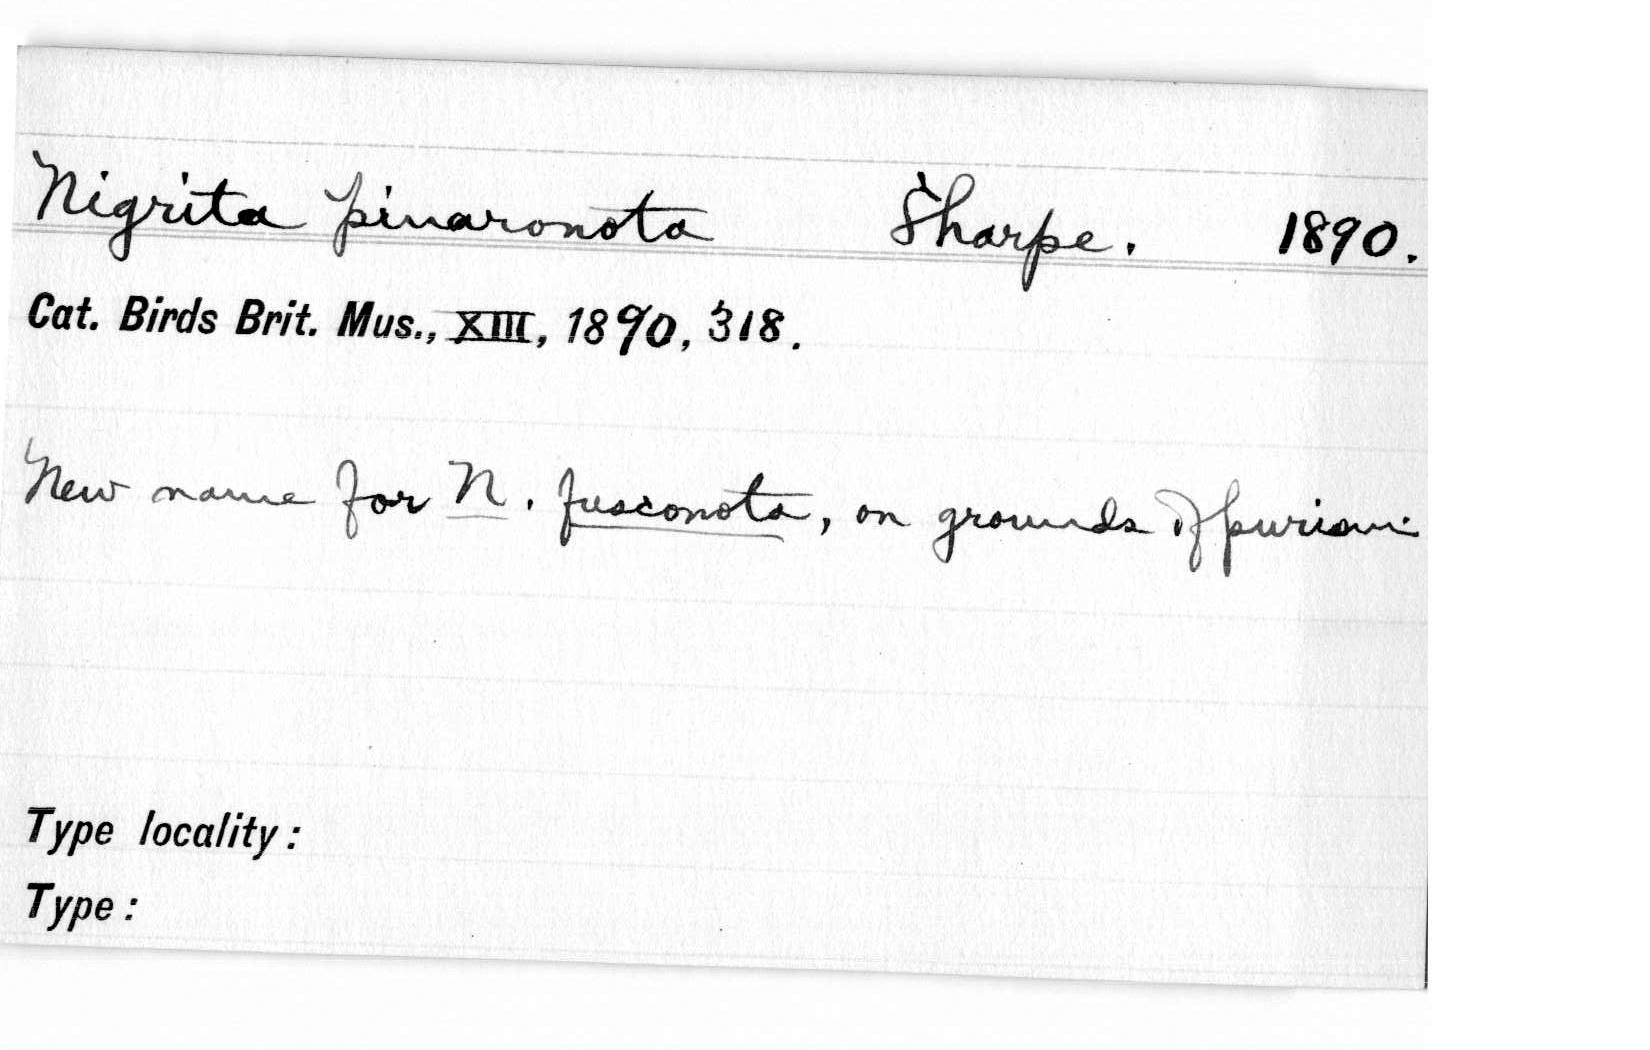 Nigrita pinaronota Sharpe. 1890.
Cat. Birds Brit. Mus., XIII, 1890, 318.
New name for N. fusconota, on grounds of purism.
Type locality:
Type: